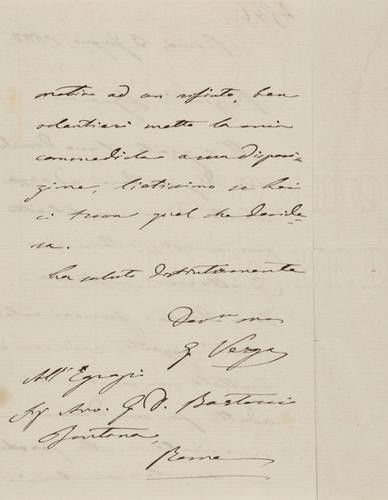 motivo ad un rifiuto, ben
volentieri metto la mia
commediola a sua disposi-
zione, lietissimo se lei
ci trova quel che deside-
ra.
La saluto distintamente
Dev.mo suo
G Verga
All' Egregio
Sig Avv. G D. Bartocci
Fontana,
Roma